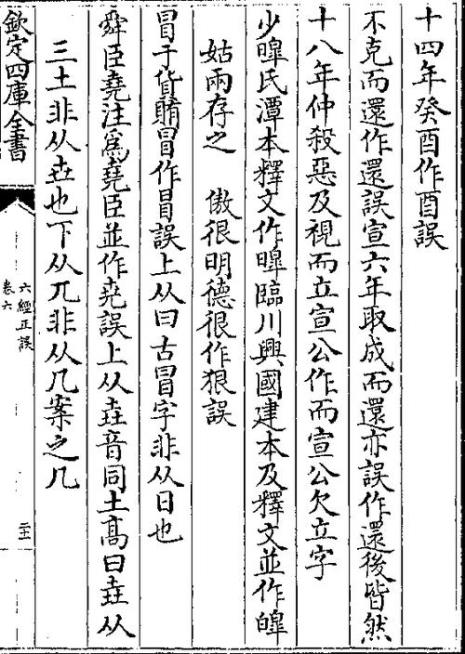 十四年癸酉作酉誤
不克而還作還誤宣六年取成而還亦誤作還後皆然
十八年仲殺惡及視而立宣公作而宣公欠立字
少皥氏潭本釋文作皥臨川興國建本及釋文並作皡
姑兩存之 傲很明德很作狠誤
冒于貨賄冒作冒誤上从曰古冒字非从日也
舜臣堯注為堯臣並作尭誤上从垚音同土高曰垚从
三土非从卋也下从兀非从几案之几
欽定四庫全書
六經正誤
卷六
二十